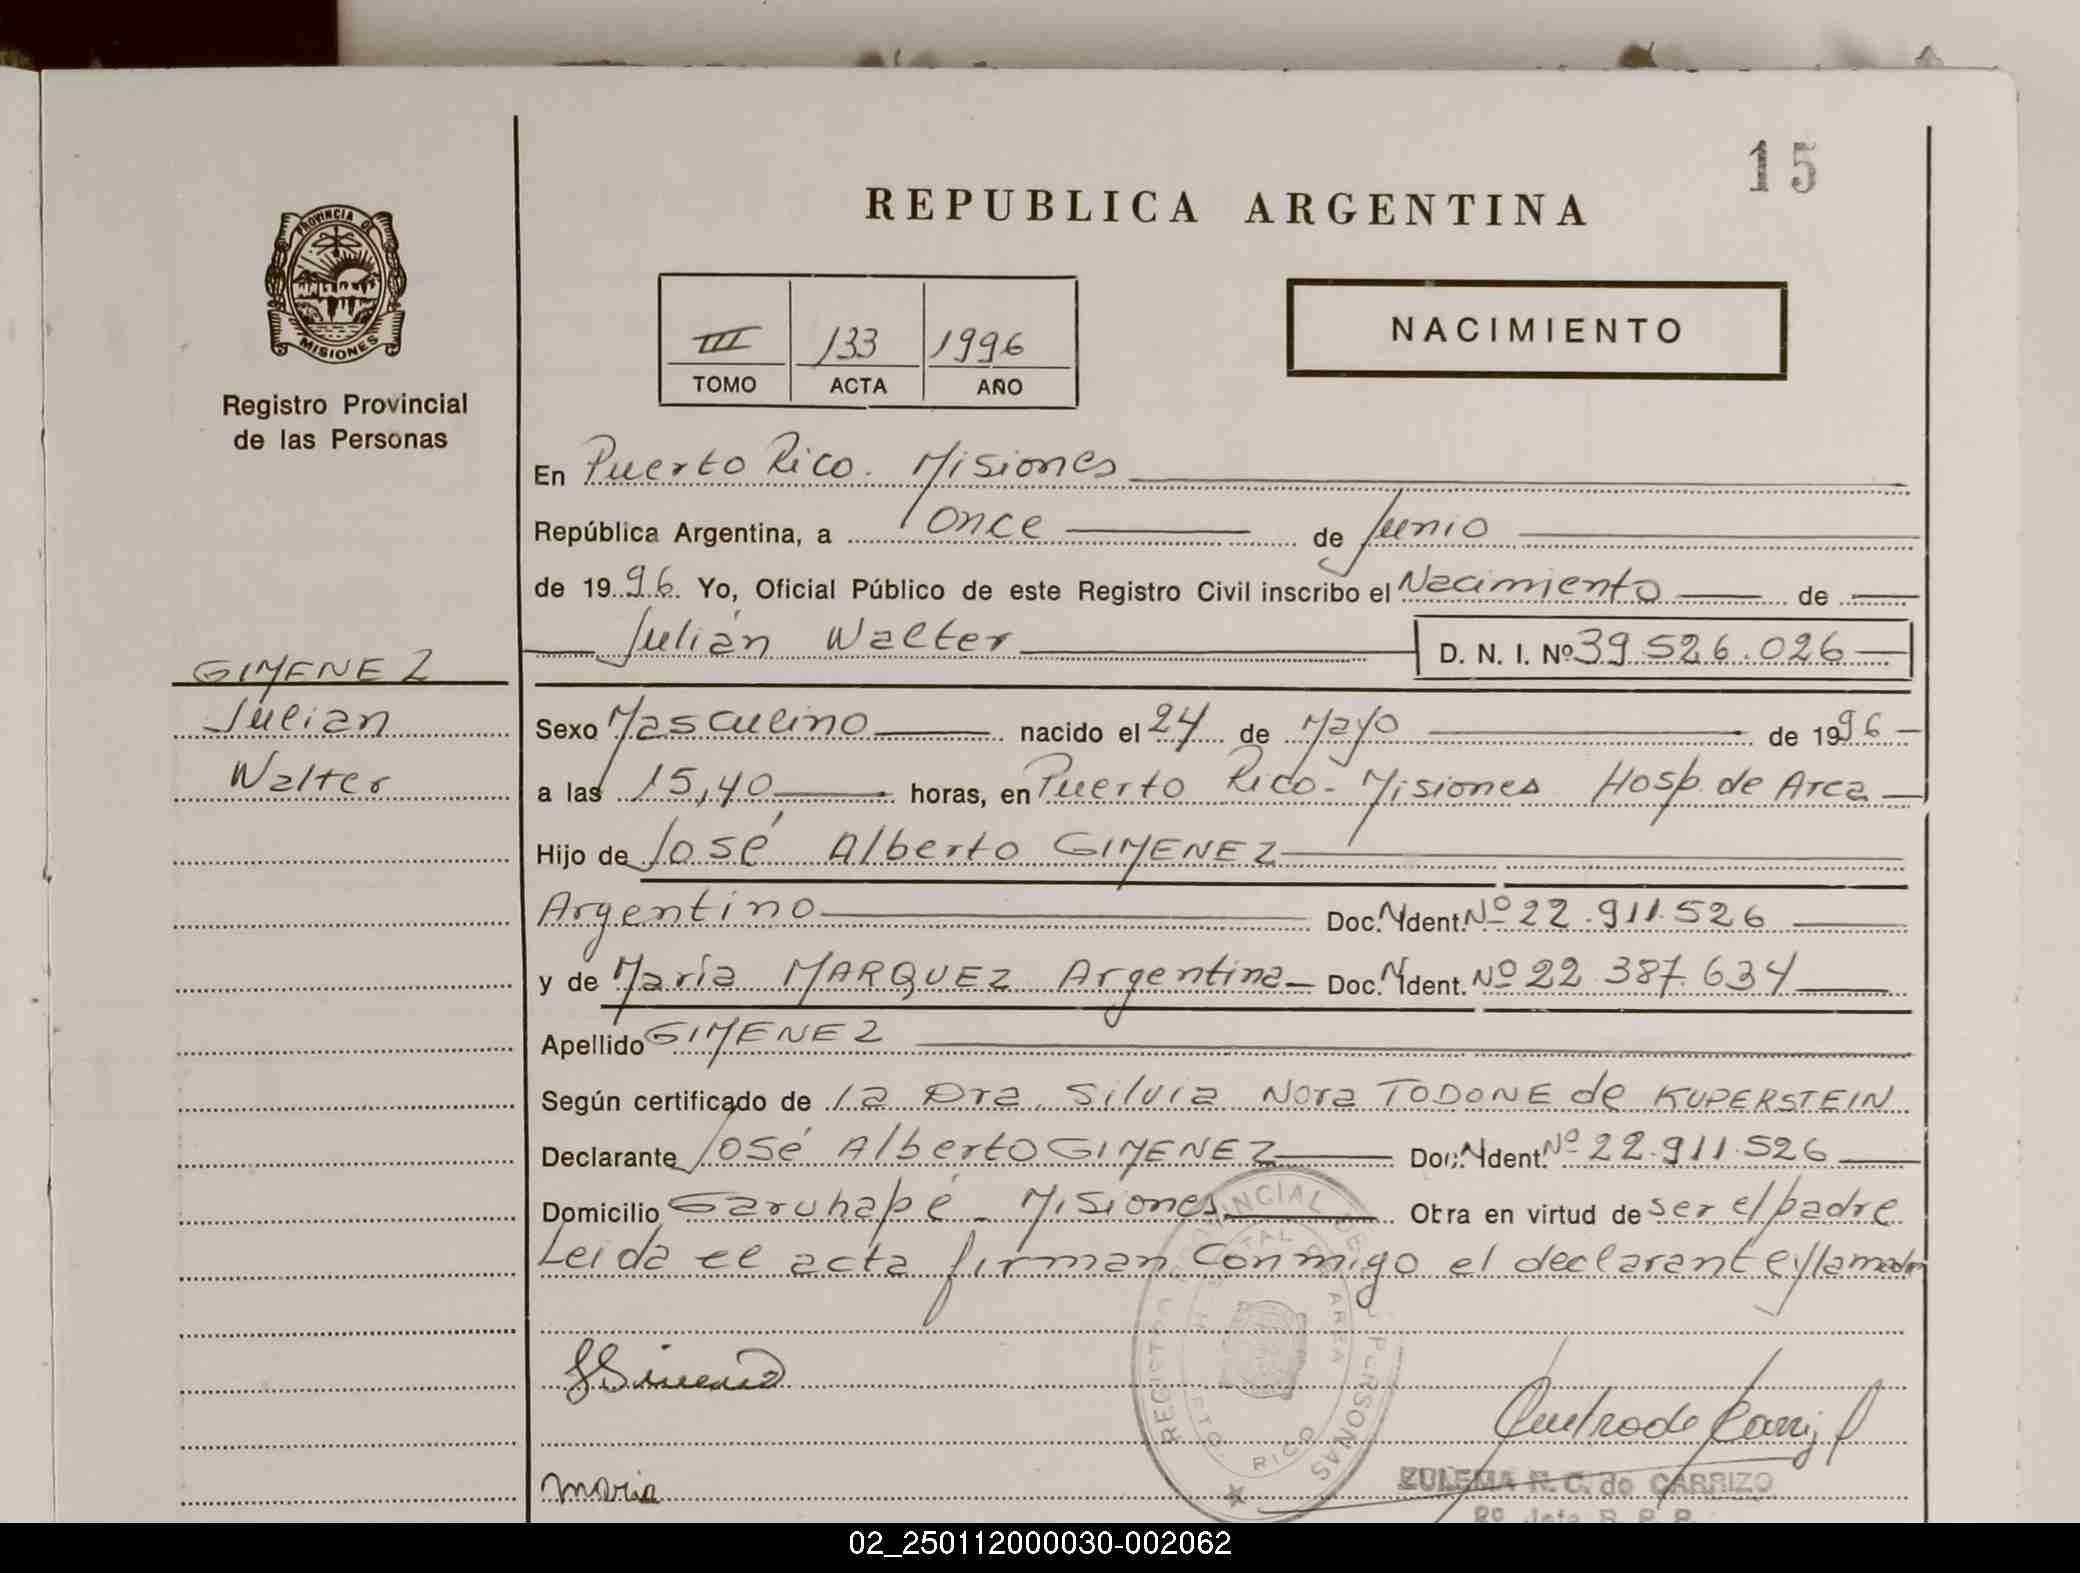 15
REPUBLICA ARGENTINA
PROVINCIA DE
MISIONES
Registro Provincial
de las Personas
III 133 1996
TOMO ACTA AÑO
NACIMIENTO
En Puerto Rico. Misiones
República Argentina, a once de Junio
de 1996. Yo, Oficial Público de este Registro Civil inscribo el Nacimiento de
Julián Walter D. N. I. Nº 39.526.026
GIMENEZ
Julian
Walter
Sexo Masculino nacido el 24 de Mayo de 1996
a las 15,40 horas, en Puerto Rico - Misiones Hosp. de Area
Hijo de José Alberto GIMENEZ
Argentino Doc. N Ident. Nº 22.911.526
y de María MARQUEZ Argentina Doc. N Ident. Nº 22.387.634
Apellido GIMENEZ
Según certificado de la Dra. Silvia Nora TODONE de KUPERSTEIN
Declarante José Alberto GIMENEZ Doc. N Ident. Nº 22.911.526
Domicilio Garuhapé - Misiones Obra en virtud de ser el padre
Leida el acta firman conmigo el declarante y la madre
REGISTRO PROVINCIAL DE LAS PERSONAS
HOSPITAL DE AREA
PTO. RICO
maria
ZULEMA R. C. de CARRIZO
02_250112000030-002062